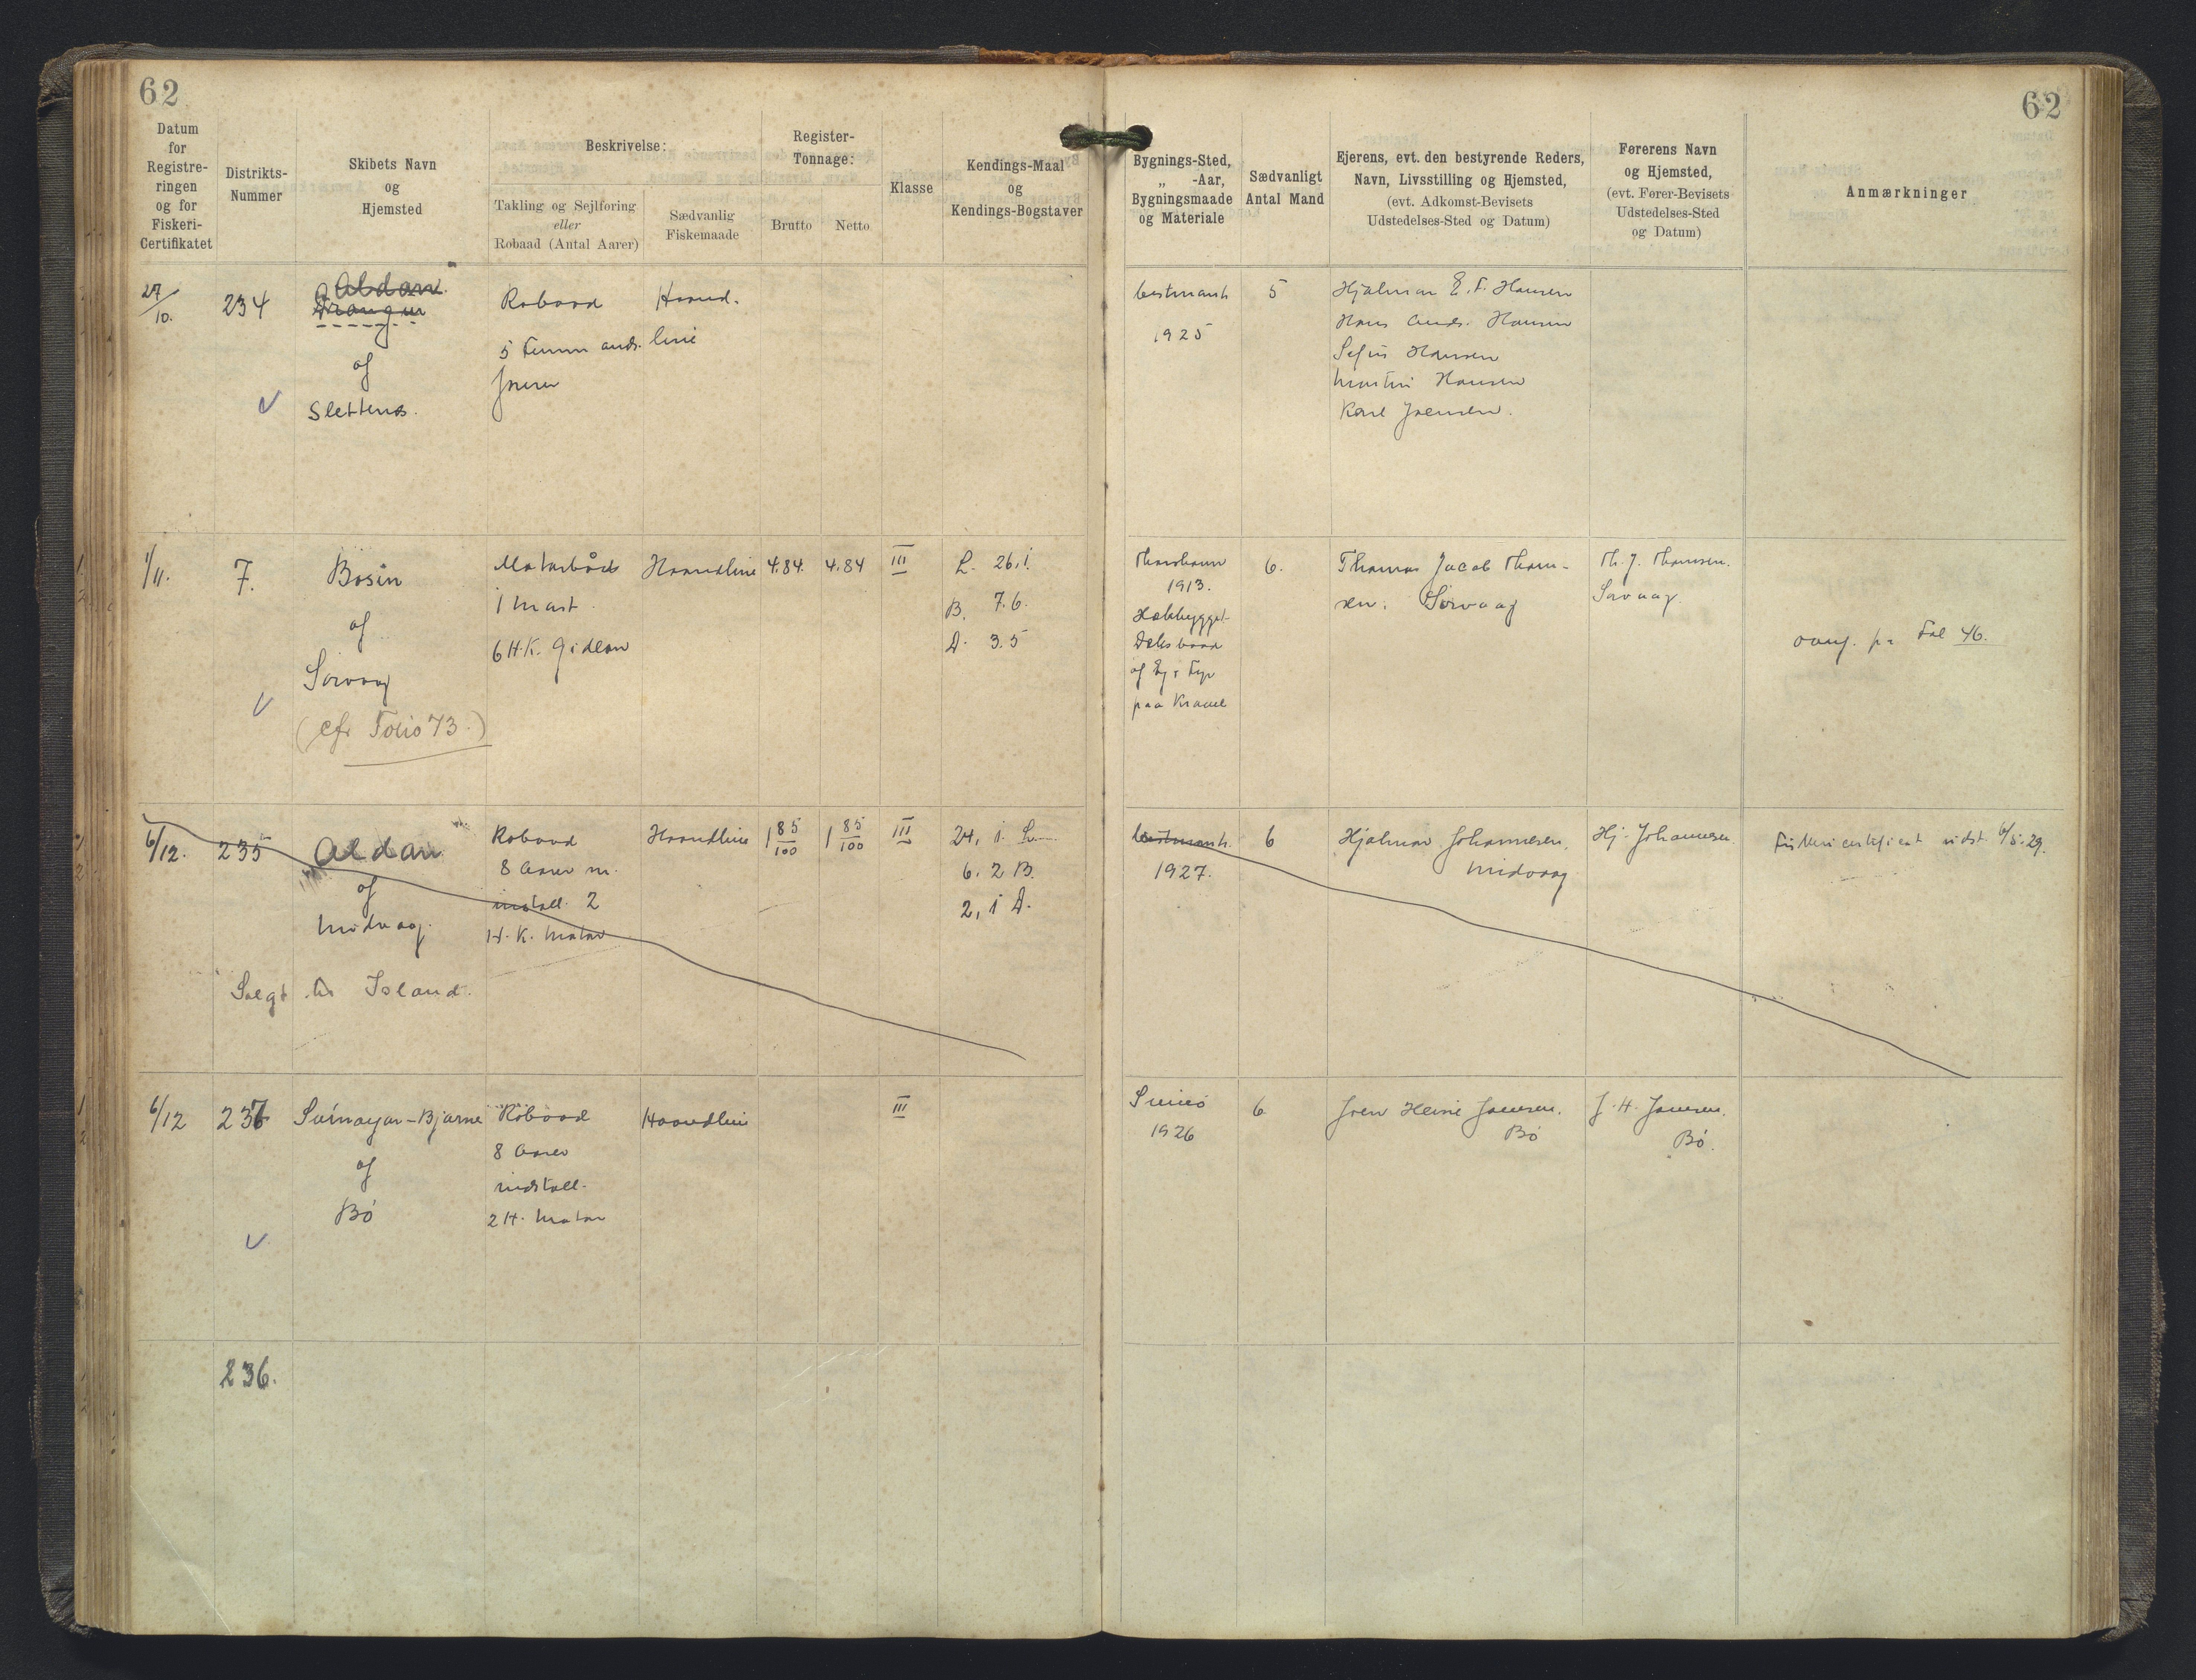 62
62
Datum
for
Registre-
ringen
og for
Fiskeri-
Certifikatet
Distrikts-
Nummer
Skibets Navn
og
Hjemsted
Beskrivelse:
Takling og Sejlføring
eller
Robaad (Antal Aarer)
Sædvanlig
Fiskemaade
Register-
Tonnage:
Brutto
Netto
Klasse
Kendings-Maal
og
Kendings-Bogstaver
Bygnings-Sted,
„ -Aar,
Bygningsmaade
og Materiale
Sædvanligt
Antal Mand
Ejerens, evt. den bestyrende Reders,
Navn, Livsstilling og Hjemsted,
(evt. Adkomst-Bevisets
Udstedelses-Sted og Datum)
Førerens Navn
og Hjemsted,
(evt. Fører-Bevisets
Udstedelses-Sted
og Datum)
Anmærkninger
27/10.
234
Aldan
Drangur
of
Slettenes.
Robaad
5
Haand-
line
1925
5
Hjalmar E. F. Hansen
Hans Andr. Hansen
Sofus Hansen
Martin Hansen
Karl Joensen.
1/11.
7.
Bosin
af
Sørvaag
(cfr Folio 73.)
Motorbåd
1 mast
6 H.K. Gideon
Haandline
4.84.
4.84
III
L. 26.1.
B. 7.6.
D. 3.5
Thorshavn
1913.
Hækbygget
Dæksbaad
af Eg & Fyr
paa Kravel
6.
Thomas Jacob Thom-
sen. Sørvaag
Th. J. Thomsen.
Sørvaag.
ovenf. på Fol 46.
6/12.
235
Aldan
af
Midvaag.
Solgt til Island.
Robaad
8 Aarer m.
install. 2
H.K. Motor
Haandline
1 85/100
1 85/100
III
24, 1 L.
6. 2 B.
2, 1 D.
1927.
6
Hjalmar Johannesen,
Midvaag
Hj. Johannesen
Fiskericertificat udst. 6/5.29.
6/12
237
Suinoyar-Bjarne
af
Bø
Robaad
8 Aarer
indstall.
2 H. Motor
Haandline
III
Svinø
1926
6
Joen Heine Joensen.
Bø
J. H. Joensen.
Bø.
236.